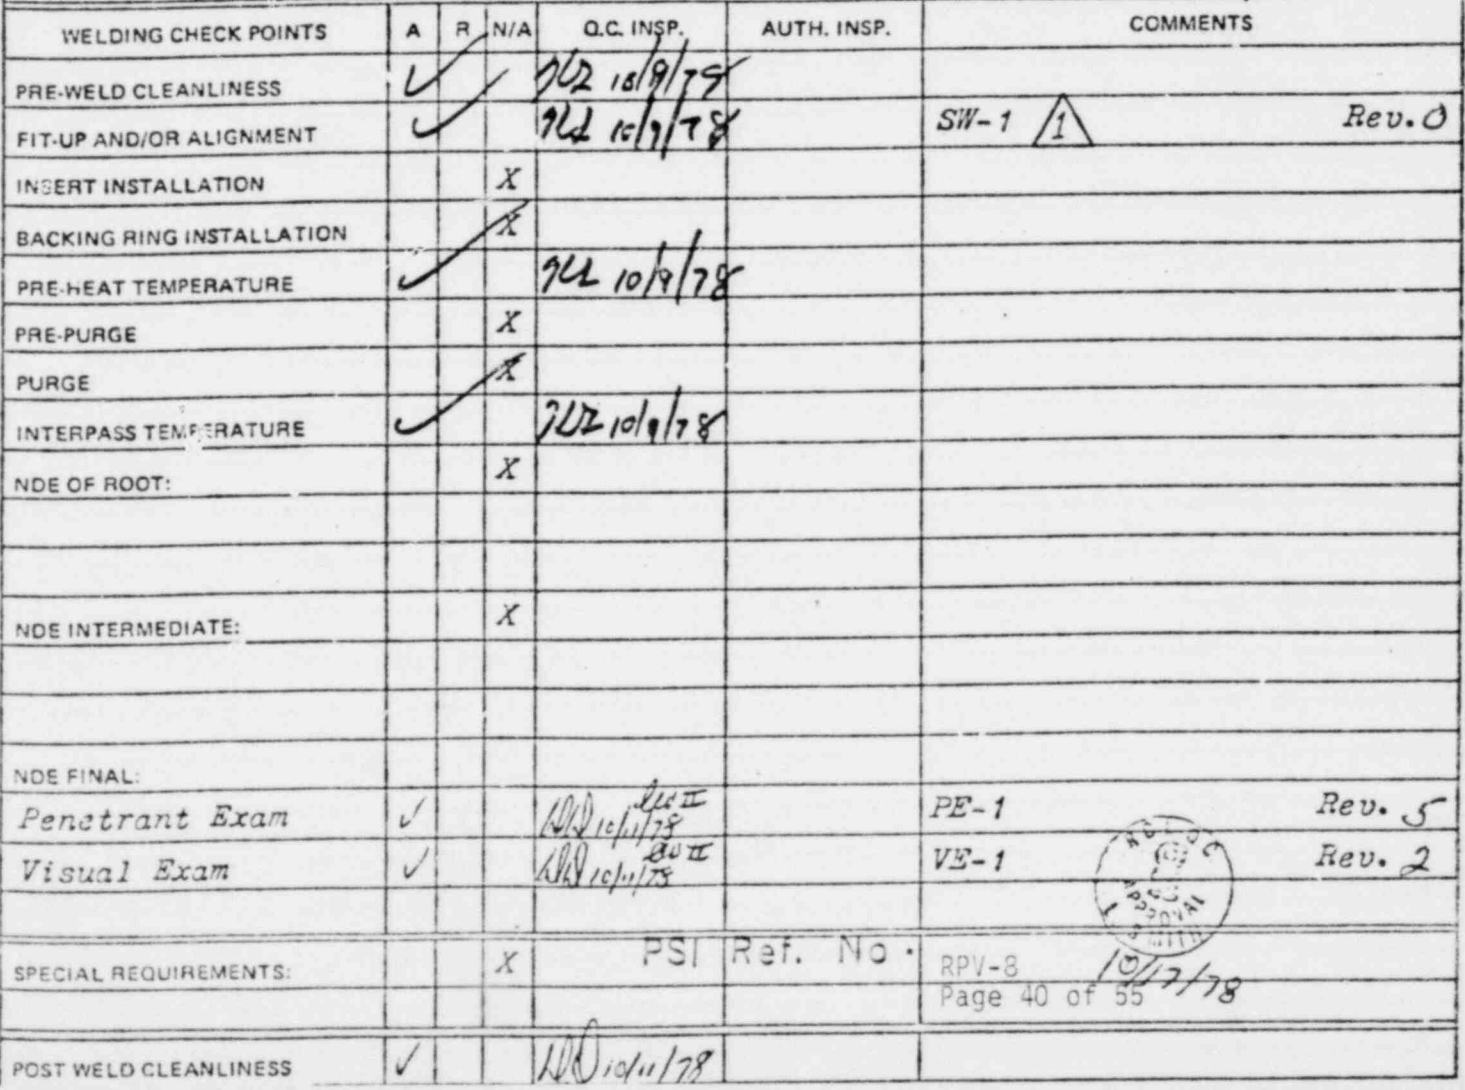 WELDING CHECK POINTS A R N/A Q.C. INSP. AUTH. INSP. COMMENTS
PRE-WELD CLEANLINESS ✓ 10/9/78
FIT-UP AND/OR ALIGNMENT ✓ 10/9/78 SW-1 1 Rev. 0
INSERT INSTALLATION X
BACKING RING INSTALLATION X
PRE-HEAT TEMPERATURE ✓ 10/9/78
PRE-PURGE X
PURGE X
INTERPASS TEMPERATURE ✓ 10/9/78
NDE OF ROOT: X
NDE INTERMEDIATE: X
NDE FINAL:
Penetrant Exam ✓ 10/11/78 PE-1 Rev. 5
Visual Exam ✓ 10/11/78 VE-1 Rev. 2
APPROVAL
PSI Ref. No.
SPECIAL REQUIREMENTS: X RPV-8 10/17/78
Page 40 of 55
POST WELD CLEANLINESS ✓ 10/11/78